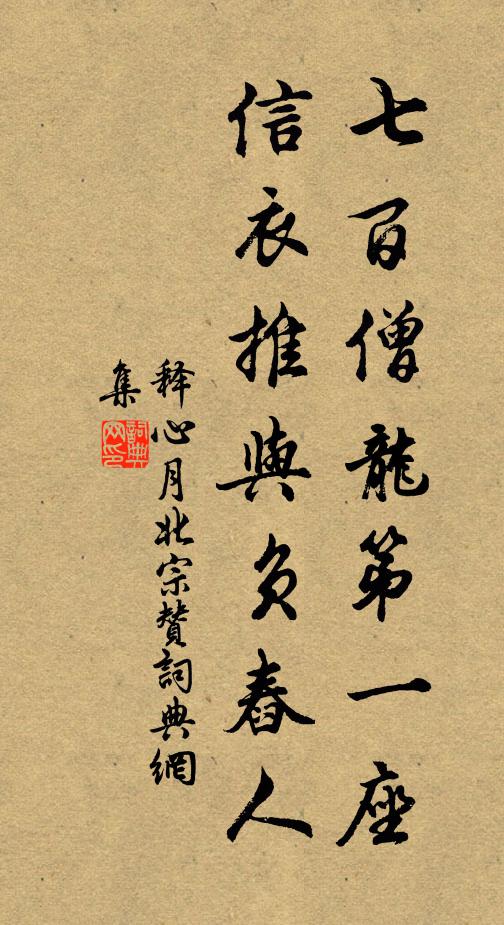 七百僧龍第一座
信衣推與負舂人
释心月北宗贊詞典網
集
詞典
网印